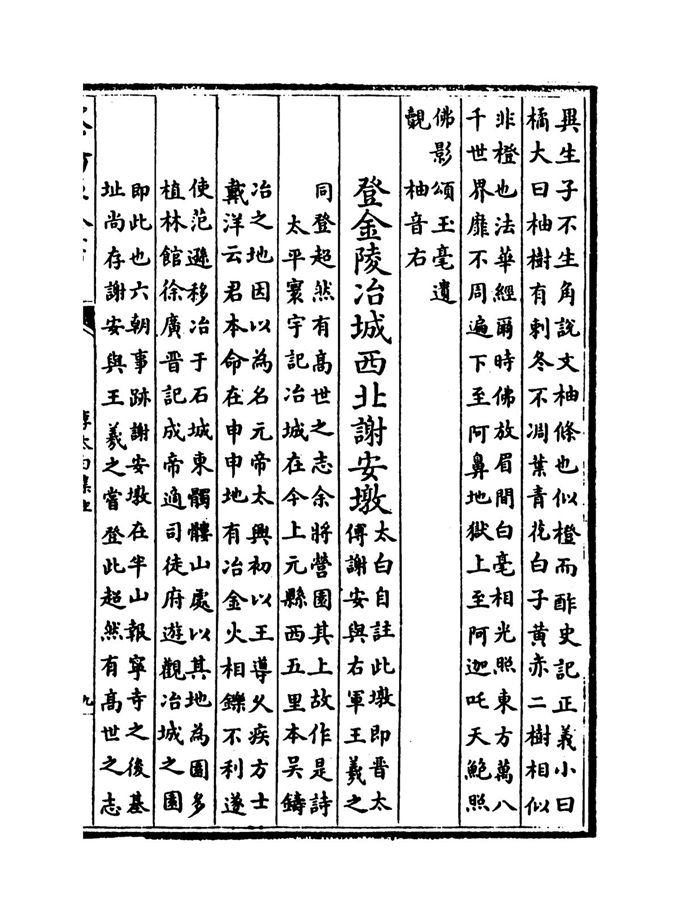 異生子不生角說文柚條也似橙而酢史記正義小曰
橘大曰柚樹有刺冬不凋葉青花白子黄赤二樹相似
非橙也法華經爾時佛放眉間白毫相光照東方萬八
千世界靡不周遍下至阿鼻地獄上至阿迦吒天鮑照
佛影頌玉毫遺
覿 柚音右
登金陵冶城西北謝安墩
太白自註此墩即晉太
傅謝安與右軍王羲之
同登超然有高世之志余將營園其上故作是詩
太平寰宇記冶城在今上元縣西五里本吳鑄
冶之地因以為名元帝太興初以王導久疾方士
戴洋云君本命在申申地有冶金火相鑠不利遂
使范遜移冶于石城東髑髏山處以其地為園多
植林館徐廣晉記成帝適司徒府遊觀冶城之園
即此也六朝事跡謝安墩在半山報寧寺之後基
址尚存謝安與王羲之嘗登此超然有高世之志